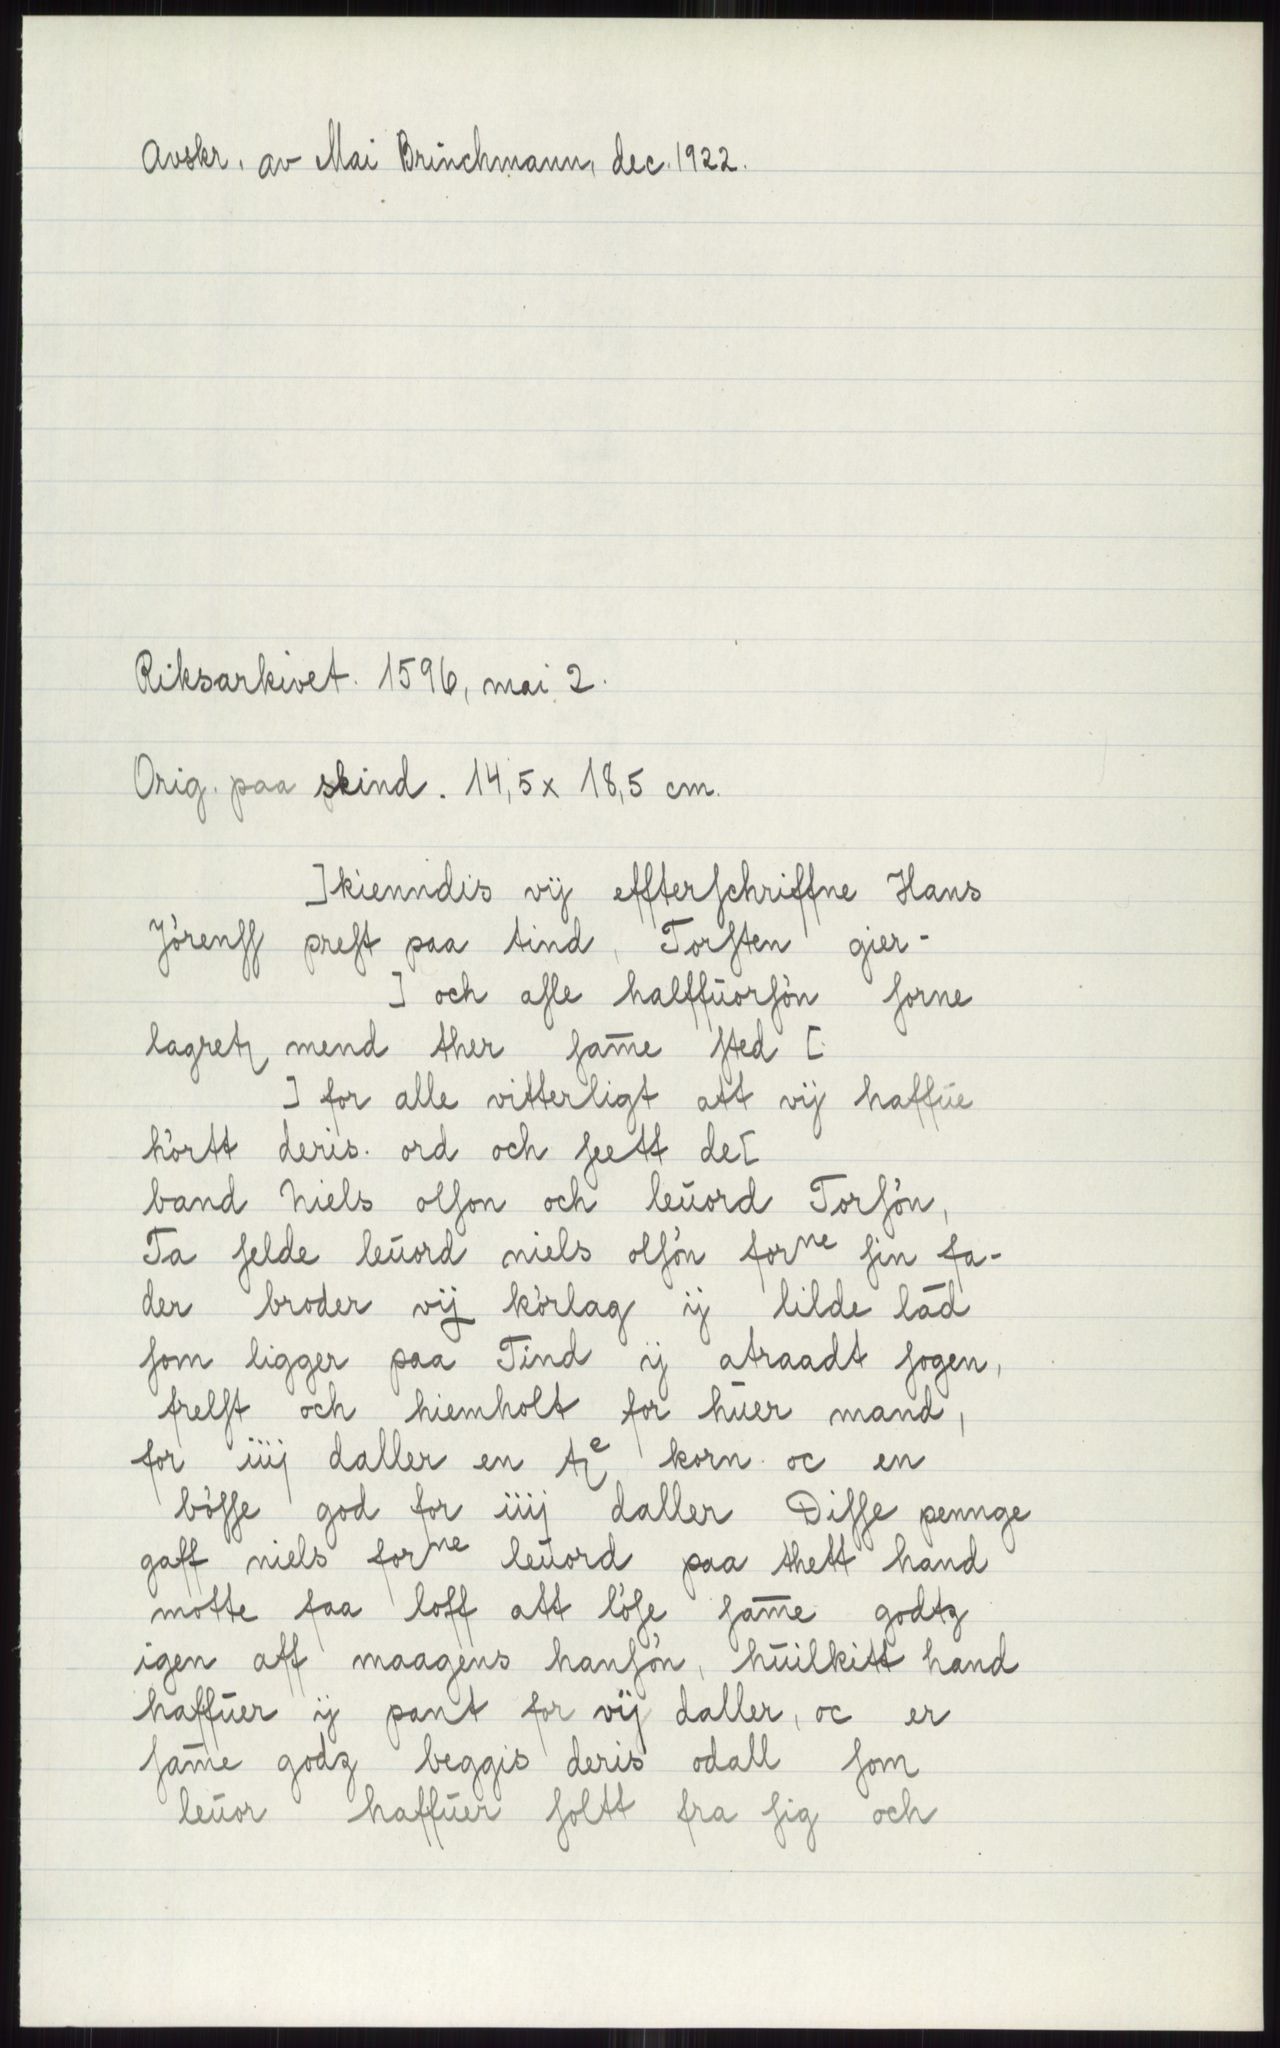 Avskr. av Mai Brinchmann, dec. 1922.
Riksarkivet. 1596, mai 2.
Orig. paa skind. 14,5 x 18,5 cm.
]kienndis vij effterſchriffne Hans
Jörenſſ preſt paa tind, Torſten gier-
] och aſle halffŭorſön ſorne
lagretz mend ther ſam̅e ſted [
] for alle vitterligt att vij haffŭe
hörtt deris ord och ſeett de[
band Niels olſon och leŭord Torſön,
Ta ſelde leŭord niels olſön forⁿᵉ ſin fa-
der broder vij körlag ij lilde lād
ſom ligger paa Tind ij atraadt ſogen,
frelſt och hiemholt for hŭer mand,
for iiij daller en tzᵉ korn oc en
böſſe god for iiij daller Diſſe pennge
gaff niels forⁿᵉ leŭord paa thett hand
motte faa loff att löſe ſam̅e godtz
igen aff maagens hanſön, hŭilkitt hand
haffŭer ij pant for vij daller, oc er
ſam̅e godz beggis deris odall ſom
leŭor haffŭer ſoltt fra ſig och